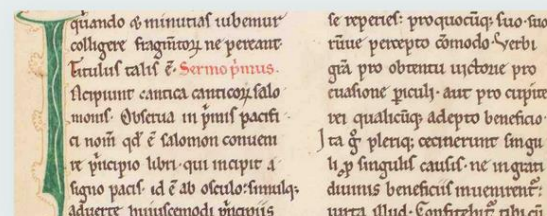 quando & minutias iubemur
colligere fragmtoꝝ ne pereant.
Titulus talis ē. Sermo pͥmus.
Ncipiunt cantica canticoꝝ salo
monis. Obserua in pͥmis pacifi
ci nom̄ qd̓ ē salomon conueni
re pͥncipio libri. qui incipit a
signo pacis. id ē ab osculo. simulqꝫ
aduerte huiuscemodi pͥncipiis
se reperies: pro quocūqꝫ suo suo
rūue percepto cōmodo. Verbi
grā pro obtentu uictorie pro
euasione piculi. aut pro cupite
rei qualicūqꝫ adepto beneficio.
Ita g̊ pleriqꝫ cecinerunt singu
li ꝓ singulis causis. ne ingrati
diuinis beneficiis inuenirent᷑:
iuxta illud. Confitebit᷑ tibi cū